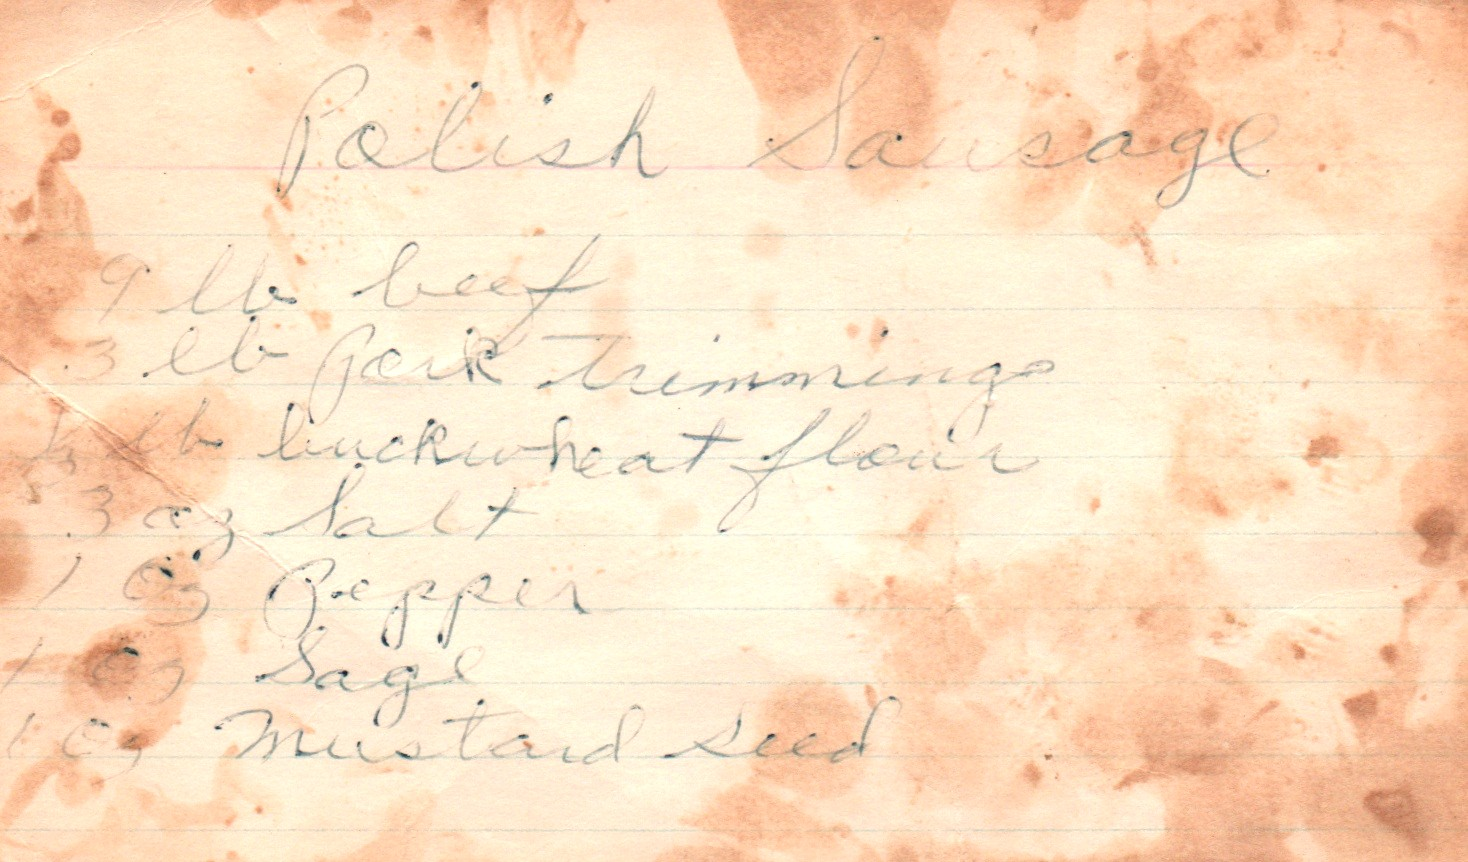 Polish Sausage
9 lb beef
3 lb Pork trimmings
lb buckwheat flour
3 oz Salt
1 oz Pepper
1 oz Sage
1 oz Mustard seed